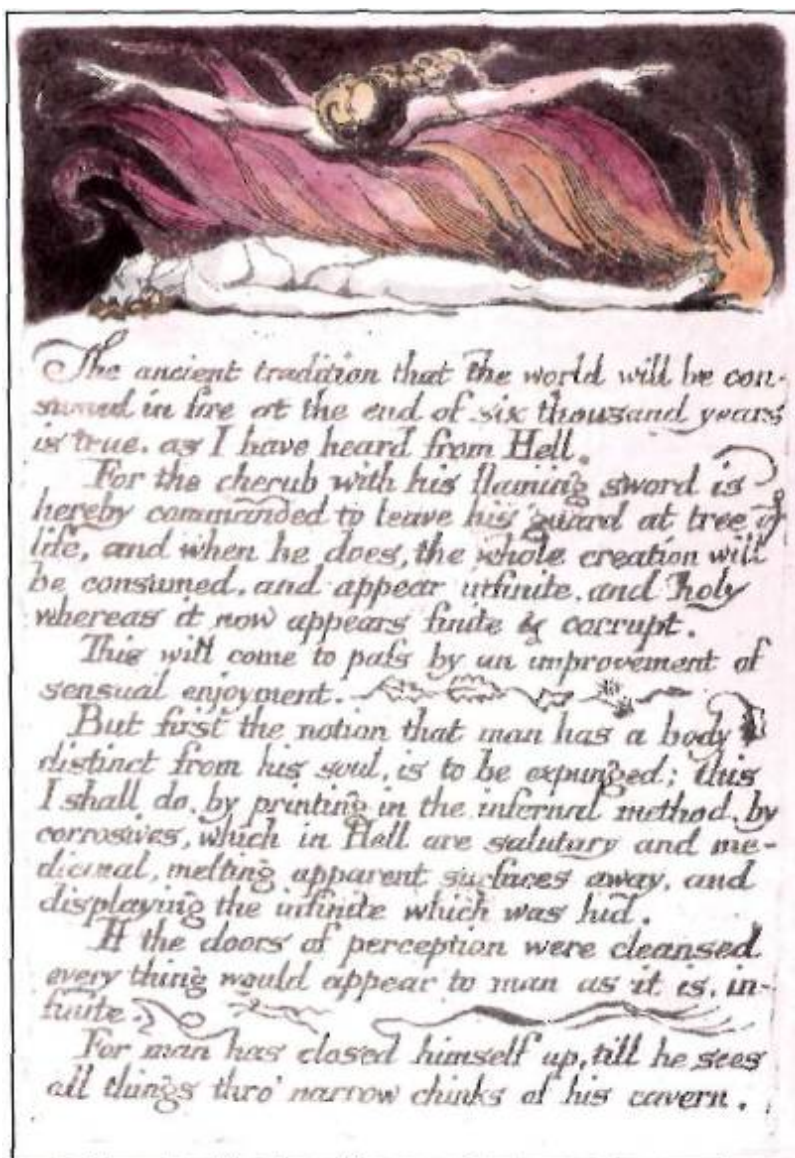 The ancient tradition that the world will be con-
sumed in fire at the end of six thousand years
is true. as I have heard from Hell.
For the cherub with his flaming sword is
hereby commanded to leave his guard at tree of
life, and when he does, the whole creation will
be consumed, and appear infinite. and holy
whereas it now appears finite & corrupt.
This will come to paſs by an improvement of
sensual enjoyment.
But first the notion that man has a body
distinct from his soul, is to be expunged; this
I shall do, by printing in the infernal method, by
corrosives, which in Hell are salutary and me-
dicinal, melting apparent surfaces away, and
displaying the infinite which was hid.
If the doors of perception were cleansed
every thing would appear to man as it is, in-
finite.
For man has closed himself up, till he sees
all things thro' narrow chinks of his cavern.